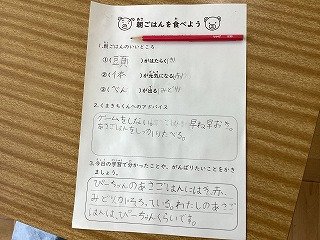 朝ごはんを食べよう
1.朝ごはんのいいところ
①( 頭 )がはたらく(き)
②( 体 )が元気になる(あか)
③( べん )が出る(みどり)
2.くまきちくんへのアドバイス
ゲームをしない 早ね早おき。
あさごはんをしっかりたべる。
3.今日の学習で分かったことや、がんばりたいことをかき
ましょう。
ぴーちゃんのあさごはんにはき、か、
みどりがそろっている。わたしのあさご
はんは、ぴーちゃんくらいです。